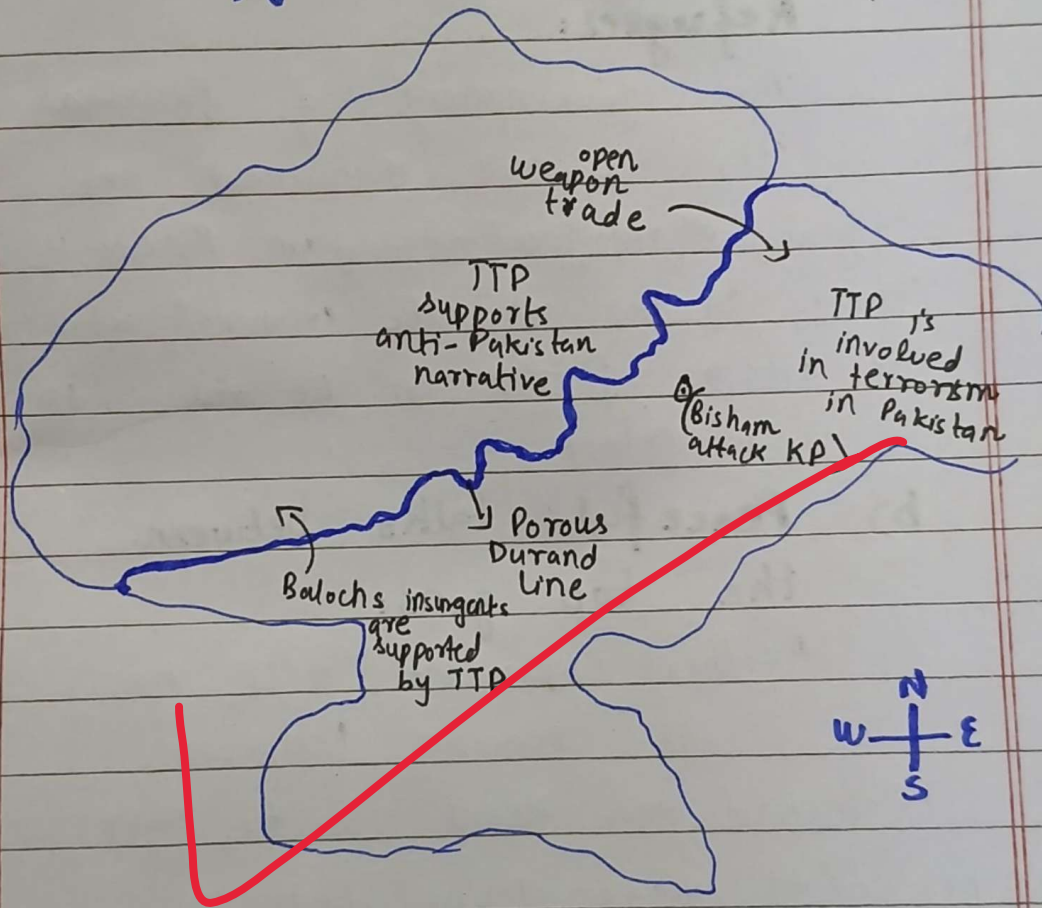 open
weapon
trade
TTP
supports
anti-Pakistan
narrative
TTP is
involved
in terrorism
in Pakistan
Bisham
attack KP
Porous
Durand
Line
Balochs insurgents
are
supported
by TTP
N
W E
S